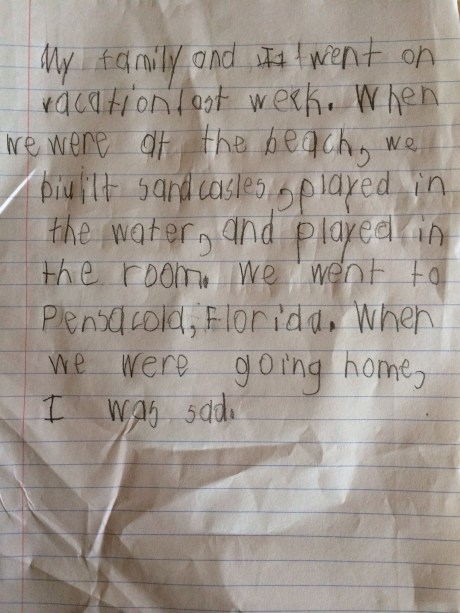 My family and I went on
vacation last wek. When
we were at the beach, we
biuilt sandcasles, played in
the water, and played in
the room. We went to
Pensacola, Florida. When
we were going home,
I was sad.